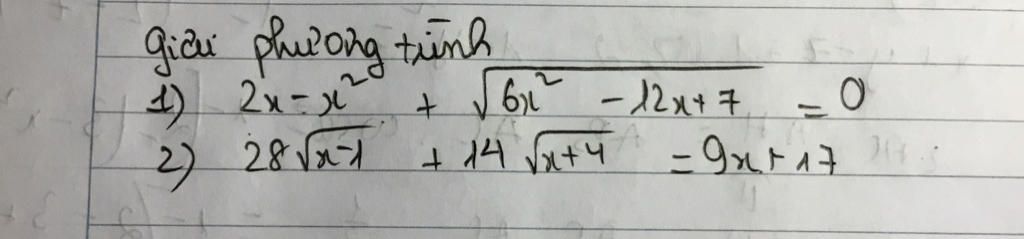 Giải phương trình
1) 2x - x² + √(6x² - 12x + 7) = 0
2) 28√(x-1) + 14√(x+4) = 9x + 17